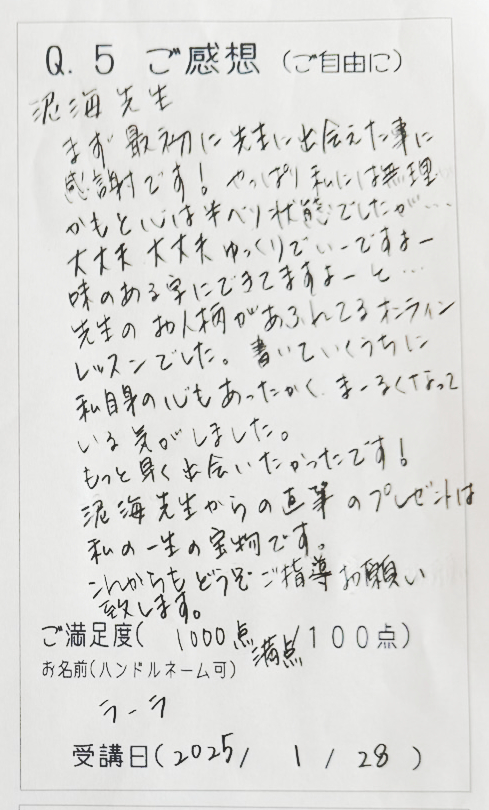 Q.5 ご感想(ご自由に)
滉海先生
まず最初に先生に出会えた事に
感謝です! やっぱり私には無理
かもと心は半ベソ状態でしたが…
大丈夫 大丈夫 ゆっくりでいーですよー
味のある字にできてますよーと…
先生のお人柄があふれてるオンライン
レッスンでした。書いていくうちに
私自身の心もあったかく、まーるくなって
いる気がしました。
もっと早く出会いたかったです!
滉海先生からの直筆のプレゼントは
私の一生の宝物です。
これからもどうぞご指導お願い
致します。
ご満足度( 1000点満点/100点)
お名前(ハンドルネーム可)
ラーラ
受講日(2025/ 1 / 28 )